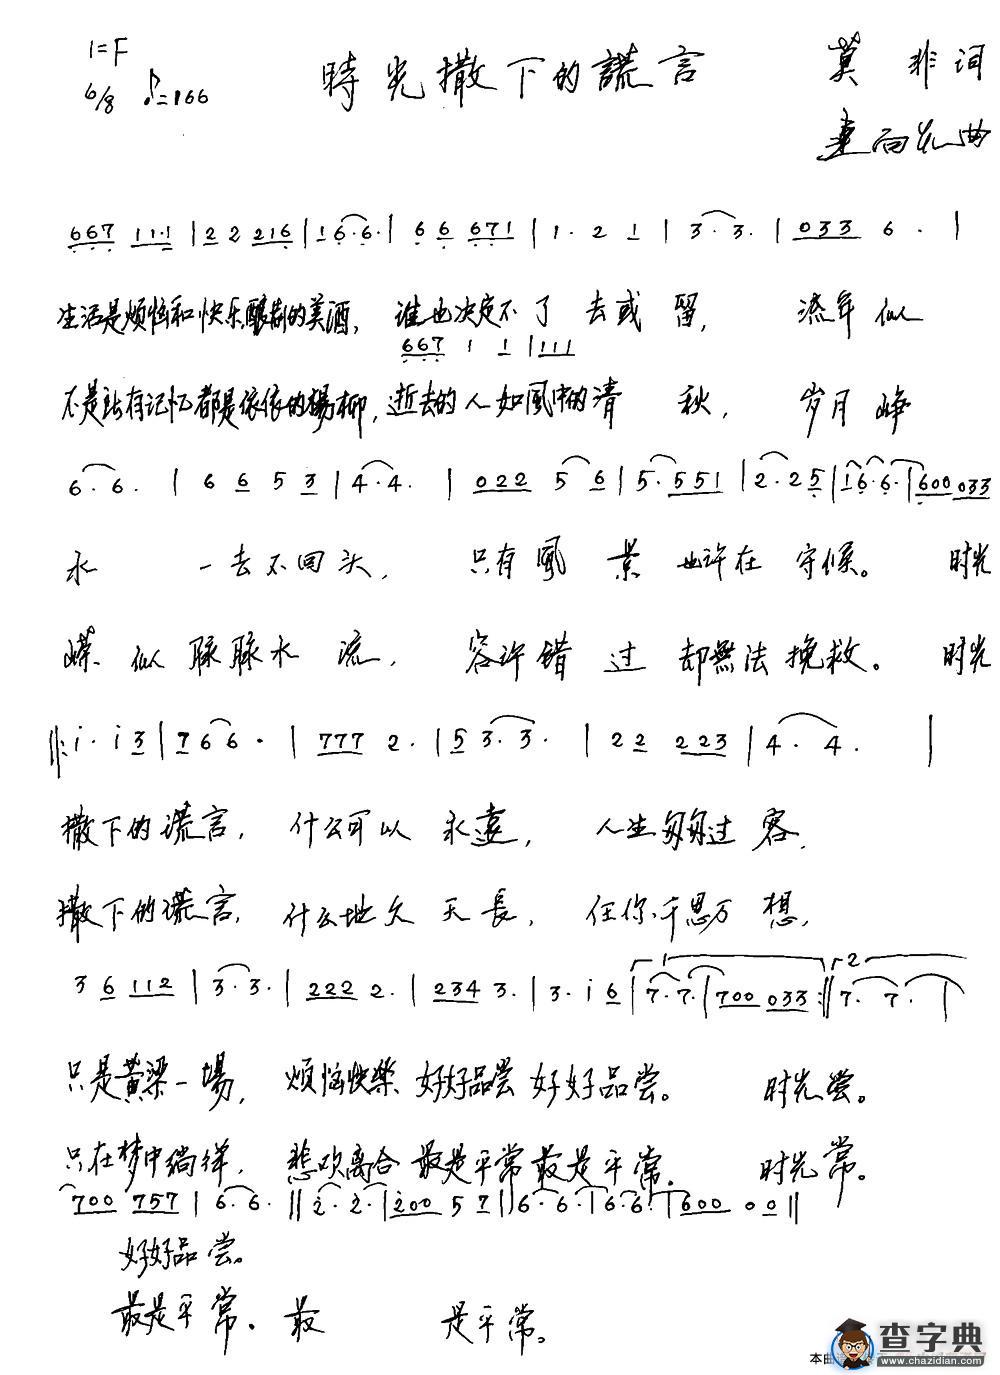 1=F
時光撒下的謊言 莫非词
6/8 ♪=166
曲
667 111·1 | 22 2216 | 16·6· | 66 671 | 1· 2 1 | 3·3· | 033 6· |
生活是烦恼和快乐酿制的美酒, 谁也决定不了去或留, 流年似
667 1 1 | 111
不是所有记忆都是依依的楊柳, 逝去的人如風中的清秋, 岁月峥
6·6· | 6 6 5 3 | 4·4· | 022 5 6 | 5·551 | 2·25 | 16·6· | 600 033
水 一去不回头, 只有風景也许在守候。 时光
嵘似脉脉水流, 容许错过却無法挽救。 时光
‖: i· i 3 | 7 6 6· | 777 2· | 5 3·3· | 22 223 | 4·4· |
撒下的谎言, 什么可以永遠, 人生匆匆过客,
撒下的谎言, 什么地久天長, 任你千思万想,
3 6 112 | 3·3· | 222 2· | 234 3· | 3· i 6 | 1 7·7· | 700 033 :‖ 2 7· 7· |
只是黄梁一場, 烦恼快樂 好好品尝 好好品尝。 时光尝。
只在梦中徜徉, 悲欢离合 最是平常 最是平常。 时光常。
700 757 | 6·6· ‖ 2·2· | 200 5 7 ‖ 6·6· | 6·6· | 600 00 ‖
好好品尝。
最是平常。最 是平常。
本曲
查字典
www.chazidian.com